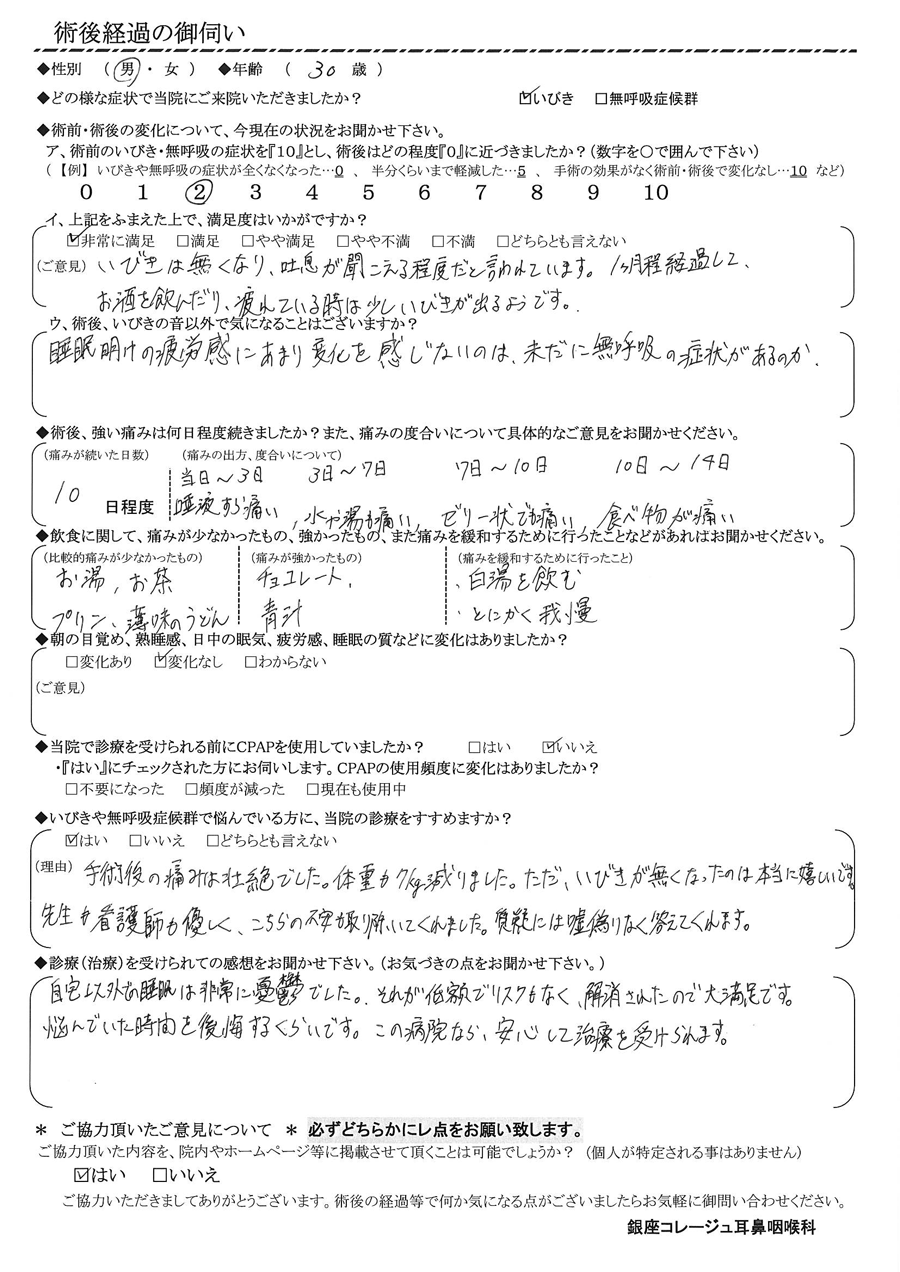 術後経過の御伺い
◆性別 （ 男 ・ 女 ） ◆年齢 （ 30 歳 ）
◆どの様な症状で当院にご来院いただきましたか？ ☑いびき □無呼吸症候群
◆術前・術後の変化について、今現在の状況をお聞かせ下さい。
ア、術前のいびき・無呼吸の症状を『10』とし、術後はどの程度『0』に近づきましたか？（数字を〇で囲んで下さい）
（ 【例】 いびきや無呼吸の症状が全くなくなった…0 、 半分くらいまで軽減した…5 、 手術の効果がなく術前・術後で変化なし…10 など）
0 1 2 3 4 5 6 7 8 9 10
イ、上記をふまえた上で、満足度はいかがですか？
☑非常に満足 □満足 □やや満足 □やや不満 □不満 □どちらとも言えない
（ご意見） いびきは無くなり、吐息が聞こえる程度だと言われています。1ヶ月程経過して、
お酒を飲んだり、疲れている時は少しいびきが出るようです。
ウ、術後、いびきの音以外で気になることはございますか？
睡眠明けの疲労感にあまり変化を感じないのは、未だに無呼吸の症状があるのか。
◆術後、強い痛みは何日程度続きましたか？また、痛みの度合いについて具体的なご意見をお聞かせください。
（痛みが続いた日数） （痛みの出方、度合いについて）
当日～3日 3日～7日 7日～10日 10日～14日
10 日程度 唾液すら痛い、水や湯も痛い、ゼリー状でも痛い、食べ物が痛い
◆飲食に関して、痛みが少なかったもの、強かったもの、また痛みを緩和するために行ったことなどがあればお聞かせください。
（比較的痛みが少なかったもの） （痛みが強かったもの） （痛みを緩和するために行ったこと）
お湯、お茶 チョコレート、 ・白湯を飲む
プリン、薄味のうどん 青汁 ・とにかく我慢
◆朝の目覚め、熟睡感、日中の眠気、疲労感、睡眠の質などに変化はありましたか？
□変化あり ☑変化なし □わからない
（ご意見）
◆当院で診療を受けられる前にCPAPを使用していましたか？ □はい ☑いいえ
・『はい』にチェックされた方にお伺いします。CPAPの使用頻度に変化はありましたか？
□不要になった □頻度が減った □現在も使用中
◆いびきや無呼吸症候群で悩んでいる方に、当院の診療をすすめますか？
☑はい □いいえ □どちらとも言えない
（理由） 手術後の痛みは壮絶でした。体重も7kg減りました。ただ、いびきが無くなったのは本当に嬉しいです。
先生も看護師も優しく、こちらの不安も取り除いてくれました。質疑には嘘偽りなく答えてくれます。
◆診療（治療）を受けられての感想をお聞かせ下さい。（お気づきの点をお聞かせ下さい。）
自宅以外の睡眠は非常に憂鬱でした。それが低額でリスクもなく、解消されたので大満足です。
悩んでいた時間を後悔するくらいです。この病院なら、安心して治療を受けられます。
＊ ご協力頂いたご意見について ＊ 必ずどちらかにレ点をお願い致します。
ご協力頂いた内容を、院内やホームページ等に掲載させて頂くことは可能でしょうか？ （個人が特定される事はありません）
☑はい □いいえ
ご協力いただきましてありがとうございます。術後の経過等で何か気になる点がございましたらお気軽に御問い合わせください。
銀座コレージュ耳鼻咽喉科